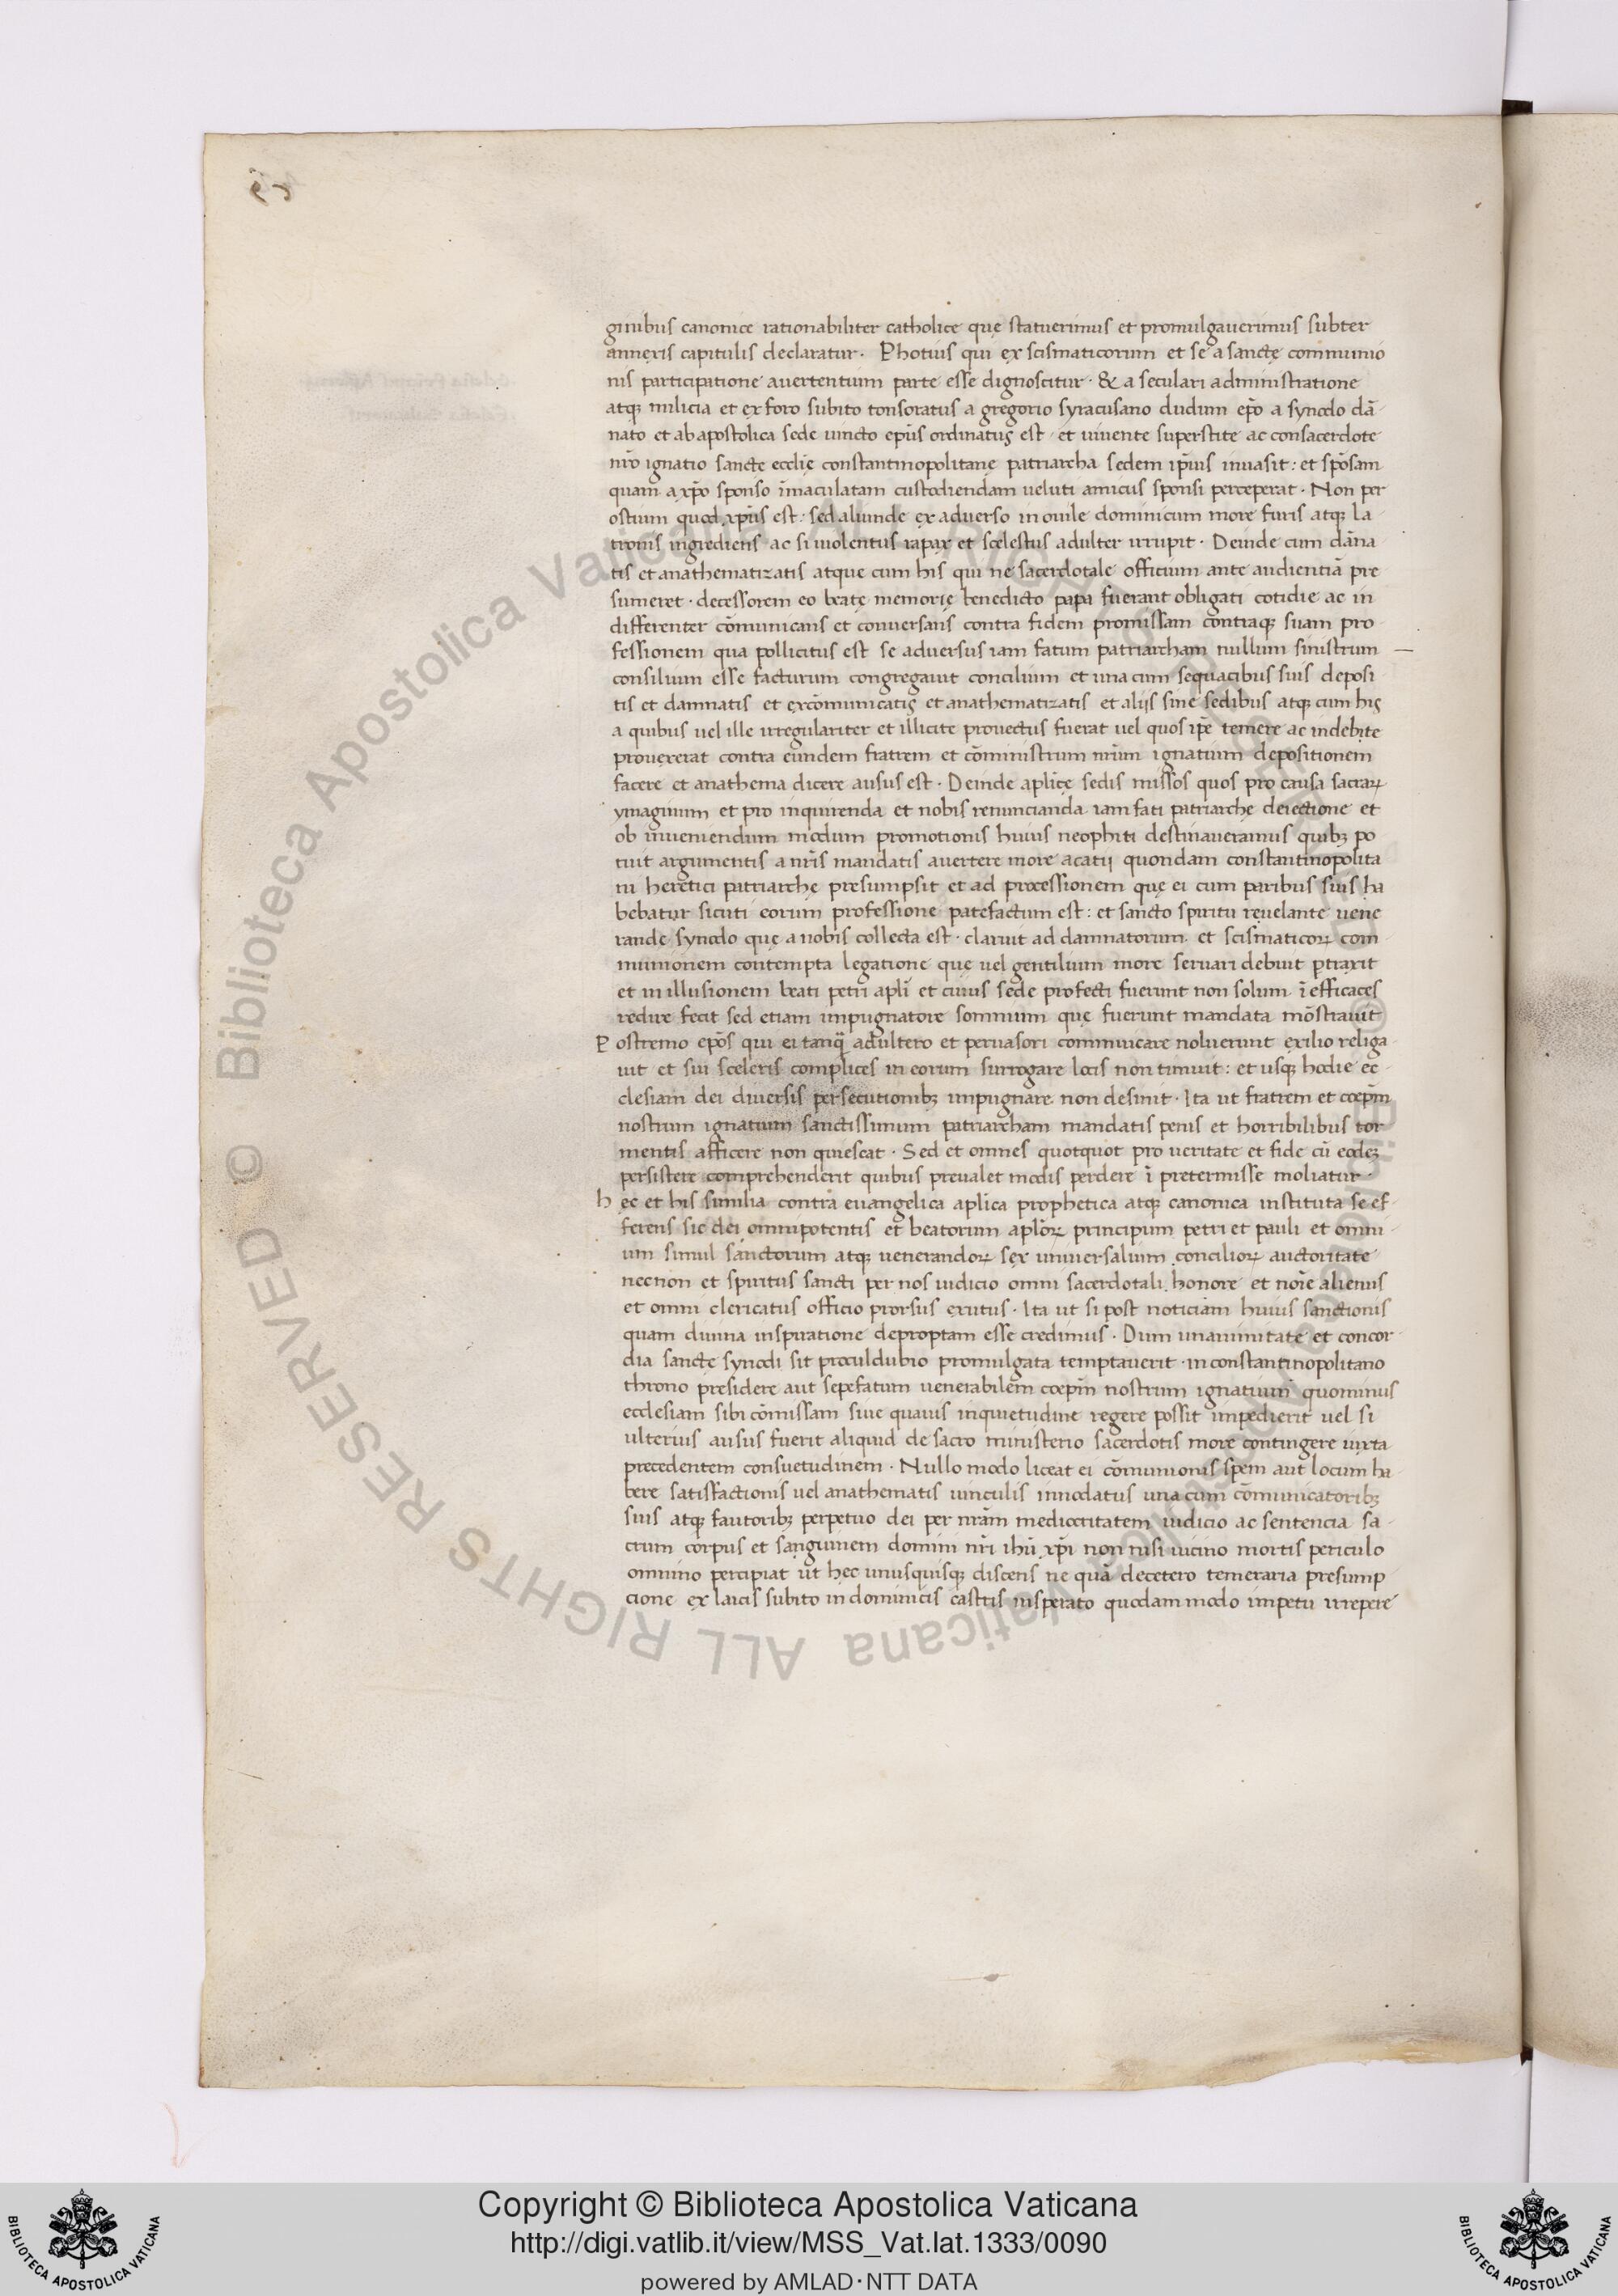 ginibus canonice rationabiliter catholice quę statuerimus et promulgauerimus subter
annexis capitulis declaratur. Photius qui ex scismaticorum et se a sanctę communio
nis participatione auertentium parte esse dignoscitur. & a seculari administratione
atqꝫ milicia et ex foro subito tonsoratus a gregorio syracusano dudum ep̄o a synodo dā
nato et ab apostolica sede uincto ep̄us ordinatus est. et uiuente superstite ac consacerdote
nr̄o ignatio sancte ecclię constantinopolitanę patriarcha sedem ip̄ius inuasit: et spōsam
quam a xp̄o sponso īmaculatam custodiendam ueluti amicus sponsi perceperat. Non per
ostium quod xp̄us est: sed aliunde ex aduerso in ouile dominicum more furis atqꝫ la
tronis ingrediens ac si uiolentus rapax et scelestus adulter irrupit. Deinde cum dāna
tis et anathematizatis atque cum his qui ne sacerdotale officium ante audientiā pre
sumeret. decessorem eo beatę memorię benedicto papa fuerant obligati cotidie ac in
differenter cōmunicans et conuersans contra fidem promissam contraqꝫ suam pro
fessionem qua pollicitus est se aduersus iam fatum patriarcham nullum sinistrum
consilium esse facturum congregauit concilium et una cum sequacibus suis deposi
tis et damnatis et excōmunicatis et anathematizatis et alijs sine sedibus atqꝫ cum his
a quibus uel ille irregulariter et illicite prouectus fuerat uel quos ip̄e temere ac indebite
prouexerat contra eundem fratrem et cōministrum nr̄um ignatium depositionem
facere et anathema dicere ausus est. Deinde aplicę sedis missos quos pro causa sacraꝝ
ymaginum et pro inquirenda et nobis renuncianda iam fati patriarchę deiectione et
ob inueniendum modum promotionis huius neophiti destinaueramus quibꝫ po
tuit argumentis a nr̄is mandatis auertere more acatij quondam constantinopolita
ni heretici patriarchę presumpsit et ad processionem quę ei cum paribus suis ha
bebatur sicuti eorum professione patefactum est: et sancto spiritu reuelante uene
rande synodo quę a nobis collecta est. claruit ad damnatorum et scismaticoꝝ com
munionem contempta legatione quę uel gentilium more seruari debuit ptraxit
et in illusionem beati petri apli et cuius sede profecti fuerunt non solum ī efficaces
redire fecit sed etiam impugnatore somnium quę fuerunt mandata mōstrauit
Postremo ep̄os qui ei tanq̄ adultero et peruasori communicare noluerunt exilio religa
uit et sui sceleris complices in eorum surrogare locis non timuit: et usqꝫ hodie ec
clesiam dei diuersis persecutionibꝫ impugnare non desinit. Ita ut fratrem et coep̄m
nostrum ignatium sanctissimum patriarcham mandatis penis et horribilibus tor
mentis afficere non quiescat. Sed et omnes quotquot pro ueritate et fide cū eodeꝫ
persistere comprehenderit quibus preualet modis perdere ī pretermisse moliatur.
hec et his similia contra euangelica aplica prophetica atqꝫ canonica instituta se ef
ferens sic dei omnipotentis et beatorum aploꝝ principum petri et pauli et omni
um simul sanctorum atqꝫ uenerandoꝝ sex uniuersalium concilioꝝ auctoritate
necnon et spiritus sancti per nos iudicio omni sacerdotali honore et noīe alienus
et omni clericatus officio prorsus exutus. Ita ut si post noticiam huius sanctionis
quam diuina inspiratione depromptam esse credimus. Dum unanimitate et concor
dia sancte synodi sit proculdubio promulgata temptauerit. in constantinopolitano
throno presidere aut sepefatum uenerabilem coep̄m nostrum ignatium quominus
ecclesiam sibi cōmissam siue quauis inquietudine regere possit impedierit uel si
ulterius ausus fuerit aliquid de sacro ministerio sacerdotis more contingere iuxta
precedentem consuetudinem. Nullo modo liceat ei cōmunionis spem aut locum ha
bere satisfactionis uel anathematis uinculis innodatus una cum cōmunicatoribꝫ
suis atqꝫ fautoribꝫ perpetuo dei per nr̄am mediocritatem iudicio ac sentencia sa
crum corpus et sanguinem domini nr̄i ihū xp̄i non nisi uicino mortis periculo
omnino percipiat ut hec unusquisqꝫ discens ne quā decetero temeraria presump
cione ex laicis subito in dominicis castris insperato quodammodo impetu irrepere
© Biblioteca Apostolica Vaticana ALL RIGHTS RESERVED © Biblioteca Apostolica Vaticana ALL RIGHTS RESERVED
Copyright © Biblioteca Apostolica Vaticana
http://digi.vatlib.it/view/MSS_Vat.lat.1333/0090
powered by AMLAD·NTT DATA
BIBLIOTECA APOSTOLICA VATICANA
BIBLIOTECA APOSTOLICA VATICANA